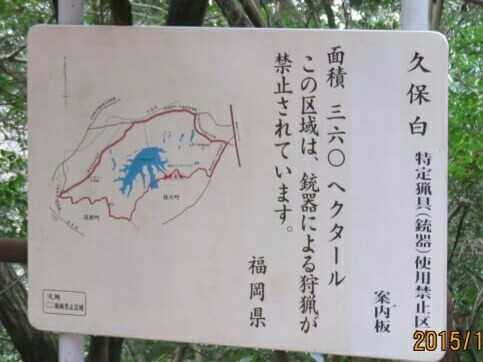 久保白 特定猟具(銃器)使用禁止区
案内板
面積 三六〇ヘクタール
この区域は、銃器による狩猟が
禁止されています。
福岡県
2015/1